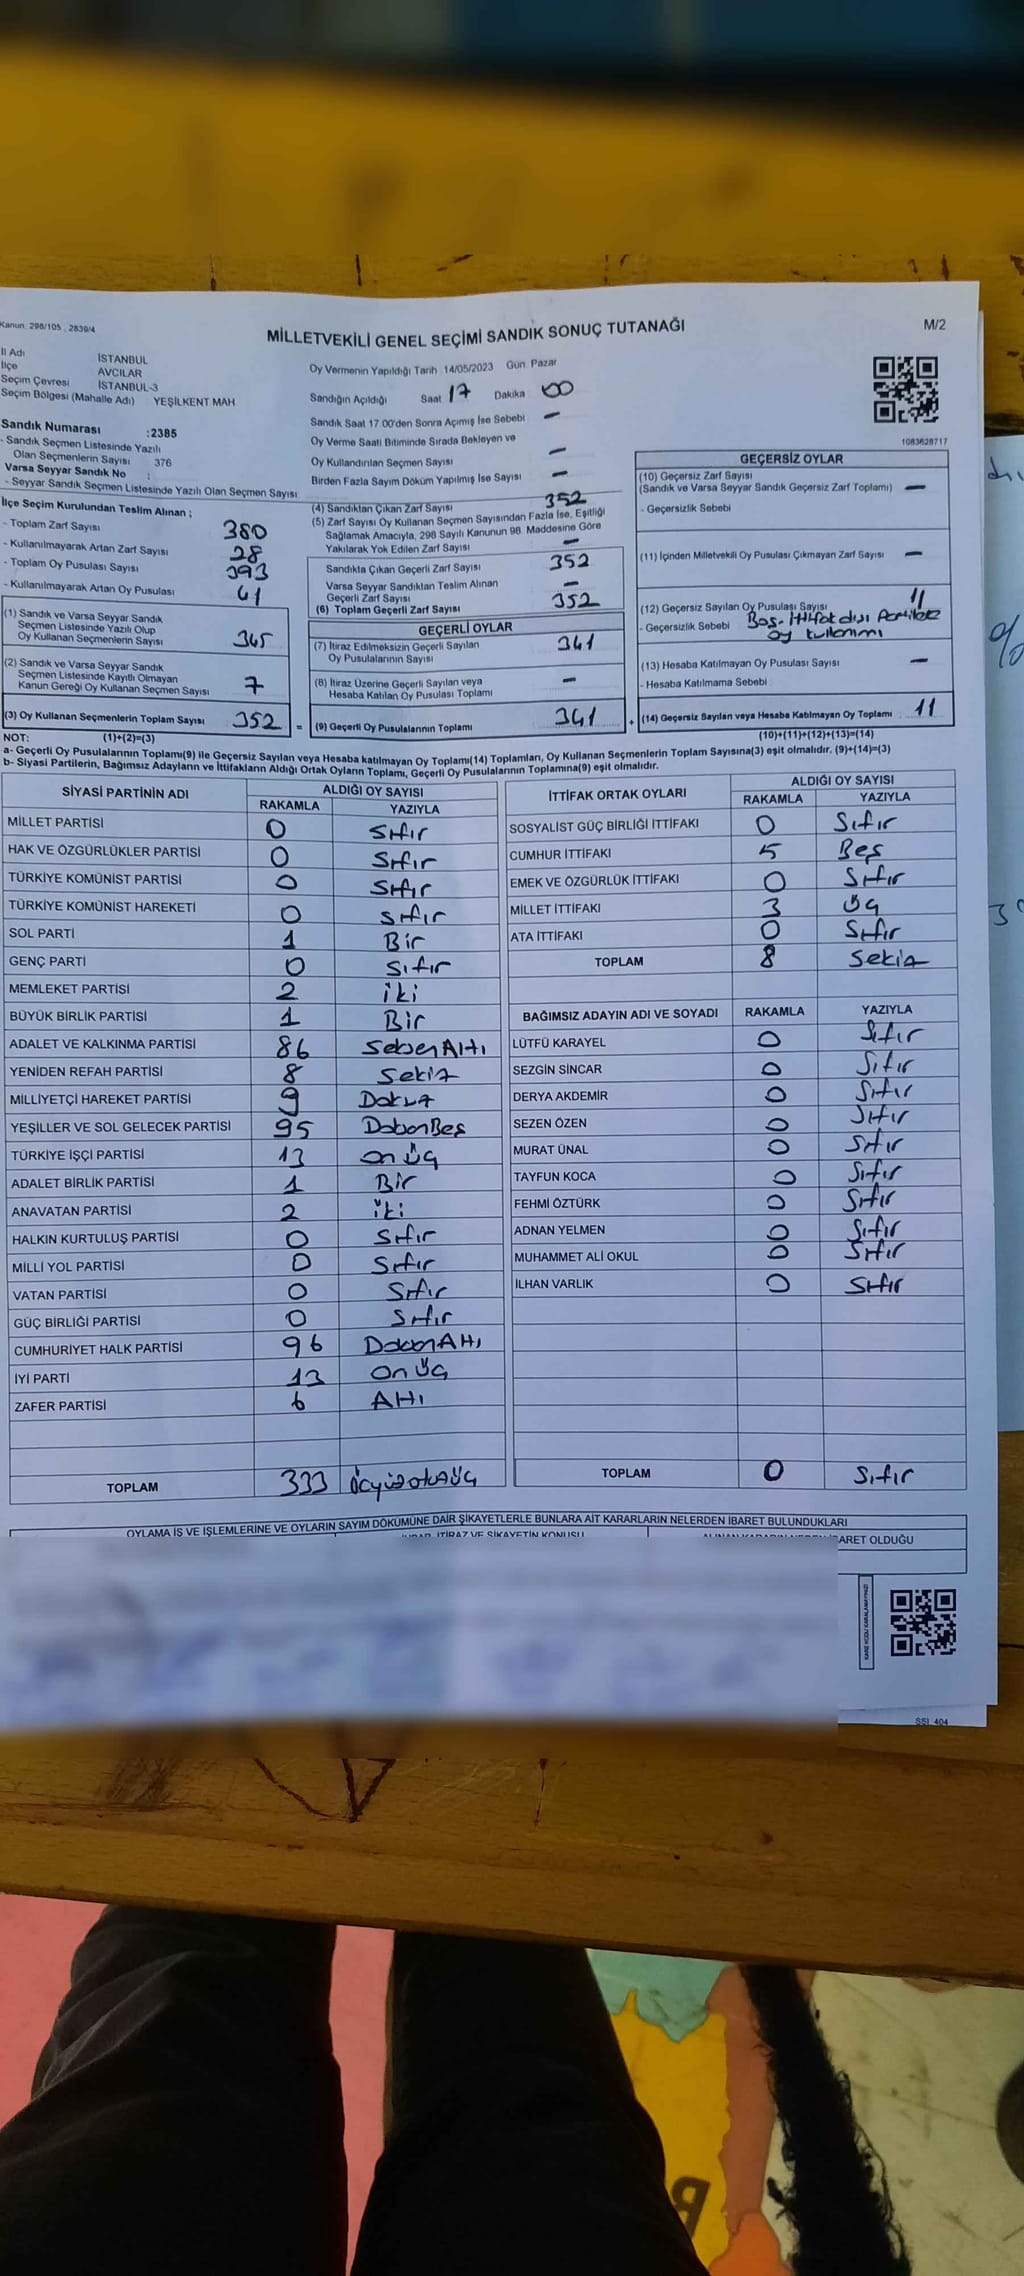 Kanun, 298/105 , 2839/4
MİLLETVEKİLİ GENEL SEÇİMİ SANDIK SONUÇ TUTANAĞI
M/2
İl Adı İSTANBUL
İlçe AVCILAR
Seçim Çevresi İSTANBUL-3
Seçim Bölgesi (Mahalle Adı) YEŞİLKENT MAH
Sandık Numarası :2385
- Sandık Seçmen Listesinde Yazılı
Olan Seçmenlerin Sayısı : 376
Varsa Seyyar Sandık No :
- Seyyar Sandık Seçmen Listesinde Yazılı Olan Seçmen Sayısı
Oy Vermenin Yapıldığı Tarih 14/05/2023 Gün Pazar
Sandığın Açıldığı Saat 17 Dakika 00
Sandık Saat 17.00'den Sonra Açımış İse Sebebi –
Oy Verme Saati Bitiminde Sırada Bekleyen ve
Oy Kullandırılan Seçmen Sayısı –
Birden Fazla Sayım Döküm Yapılmış İse Sayısı –
1083628717
İlçe Seçim Kurulundan Teslim Alınan ;
- Toplam Zarf Sayısı 380
- Kullanılmayarak Artan Zarf Sayısı 28
- Toplam Oy Pusulası Sayısı 393
- Kullanılmayarak Artan Oy Pusulası 41
(1) Sandık ve Varsa Seyyar Sandık
Seçmen Listesinde Yazılı Olup
Oy Kullanan Seçmenlerin Sayısı 345
(2) Sandık ve Varsa Seyyar Sandık
Seçmen Listesinde Kayıtlı Olmayan
Kanun Gereği Oy Kullanan Seçmen Sayısı 7
(3) Oy Kullanan Seçmenlerin Toplam Sayısı 352 =
(4) Sandıktan Çıkan Zarf Sayısı 352
(5) Zarf Sayısı Oy Kullanan Seçmen Sayısından Fazla İse, Eşitliği
Sağlamak Amacıyla, 298 Sayılı Kanunun 98. Maddesine Göre
Yakılarak Yok Edilen Zarf Sayısı –
Sandıkta Çıkan Geçerli Zarf Sayısı 352
Varsa Seyyar Sandıktan Teslim Alınan
Geçerli Zarf Sayısı –
(6) Toplam Geçerli Zarf Sayısı 352
GEÇERLİ OYLAR
(7) İtiraz Edilmeksizin Geçerli Sayılan
Oy Pusulalarının Sayısı 341
(8) İtiraz Üzerine Geçerli Sayılan veya
Hesaba Katılan Oy Pusulası Toplamı –
(9) Geçerli Oy Pusulalarının Toplamı 341 +
GEÇERSİZ OYLAR
(10) Geçersiz Zarf Sayısı
(Sandık ve Varsa Seyyar Sandık Geçersiz Zarf Toplamı) –
- Geçersizlik Sebebi
(11) İçinden Milletvekili Oy Pusulası Çıkmayan Zarf Sayısı –
(12) Geçersiz Sayılan Oy Pusulası Sayısı 11
- Geçersizlik Sebebi Boş - İttifak dışı Partilere
oy kullanımı
(13) Hesaba Katılmayan Oy Pusulası Sayısı –
- Hesaba Katılmama Sebebi
(14) Geçersiz Sayılan veya Hesaba Katılmayan Oy Toplamı : 11
NOT: (1)+(2)=(3) (10)+(11)+(12)+(13)=(14)
a- Geçerli Oy Pusulalarının Toplamı(9) ile Geçersiz Sayılan veya Hesaba katılmayan Oy Toplamı(14) Toplamları, Oy Kullanan Seçmenlerin Toplam Sayısına(3) eşit olmalıdır. (9)+(14)=(3)
b- Siyasi Partilerin, Bağımsız Adayların ve İttifakların Aldığı Ortak Oyların Toplamı, Geçerli Oy Pusulalarının Toplamına(9) eşit olmalıdır.
SİYASİ PARTİNİN ADI ALDIĞI OY SAYISI
RAKAMLA YAZIYLA
MİLLET PARTİSİ 0 Sıfır
HAK VE ÖZGÜRLÜKLER PARTİSİ 0 Sıfır
TÜRKİYE KOMÜNİST PARTİSİ 0 Sıfır
TÜRKİYE KOMÜNİST HAREKETİ 0 Sıfır
SOL PARTİ 1 Bir
GENÇ PARTİ 0 Sıfır
MEMLEKET PARTİSİ 2 iki
BÜYÜK BİRLİK PARTİSİ 1 Bir
ADALET VE KALKINMA PARTİSİ 86 SeksenAltı
YENİDEN REFAH PARTİSİ 8 Sekiz
MİLLİYETÇİ HAREKET PARTİSİ 9 Dokuz
YEŞİLLER VE SOL GELECEK PARTİSİ 95 DoksanBeş
TÜRKİYE İŞÇİ PARTİSİ 13 on üç
ADALET BİRLİK PARTİSİ 1 Bir
ANAVATAN PARTİSİ 2 iki
HALKIN KURTULUŞ PARTİSİ 0 Sıfır
MİLLİ YOL PARTİSİ 0 Sıfır
VATAN PARTİSİ 0 Sıfır
GÜÇ BİRLİĞİ PARTİSİ 0 Sıfır
CUMHURİYET HALK PARTİSİ 96 DoksanAltı
İYİ PARTİ 13 on üç
ZAFER PARTİSİ 6 Altı
TOPLAM 333 üçyüzotuzüç
İTTİFAK ORTAK OYLARI ALDIĞI OY SAYISI
RAKAMLA YAZIYLA
SOSYALİST GÜÇ BİRLİĞİ İTTİFAKI 0 Sıfır
CUMHUR İTTİFAKI 5 Beş
EMEK VE ÖZGÜRLÜK İTTİFAKI 0 Sıfır
MİLLET İTTİFAKI 3 üç
ATA İTTİFAKI 0 Sıfır
TOPLAM 8 Sekiz
BAĞIMSIZ ADAYIN ADI VE SOYADI RAKAMLA YAZIYLA
LÜTFÜ KARAYEL 0 Sıfır
SEZGİN SİNCAR 0 Sıfır
DERYA AKDEMİR 0 Sıfır
SEZEN ÖZEN 0 Sıfır
MURAT ÜNAL 0 Sıfır
TAYFUN KOCA 0 Sıfır
FEHMİ ÖZTÜRK 0 Sıfır
ADNAN YELMEN 0 Sıfır
MUHAMMET ALİ OKUL 0 Sıfır
İLHAN VARLIK 0 Sıfır
TOPLAM 0 Sıfır
OYLAMA İŞ VE İŞLEMLERİNE VE OYLARIN SAYIM DÖKÜMÜNE DAİR ŞİKAYETLERLE BUNLARA AİT KARARLARIN NELERDEN İBARET BULUNDUKLARI
İTİRAZ VE ŞİKAYETİN KONUSU
İBARET OLDUĞU
KARE KODU KARALAMAYINIZ!
SSI 404